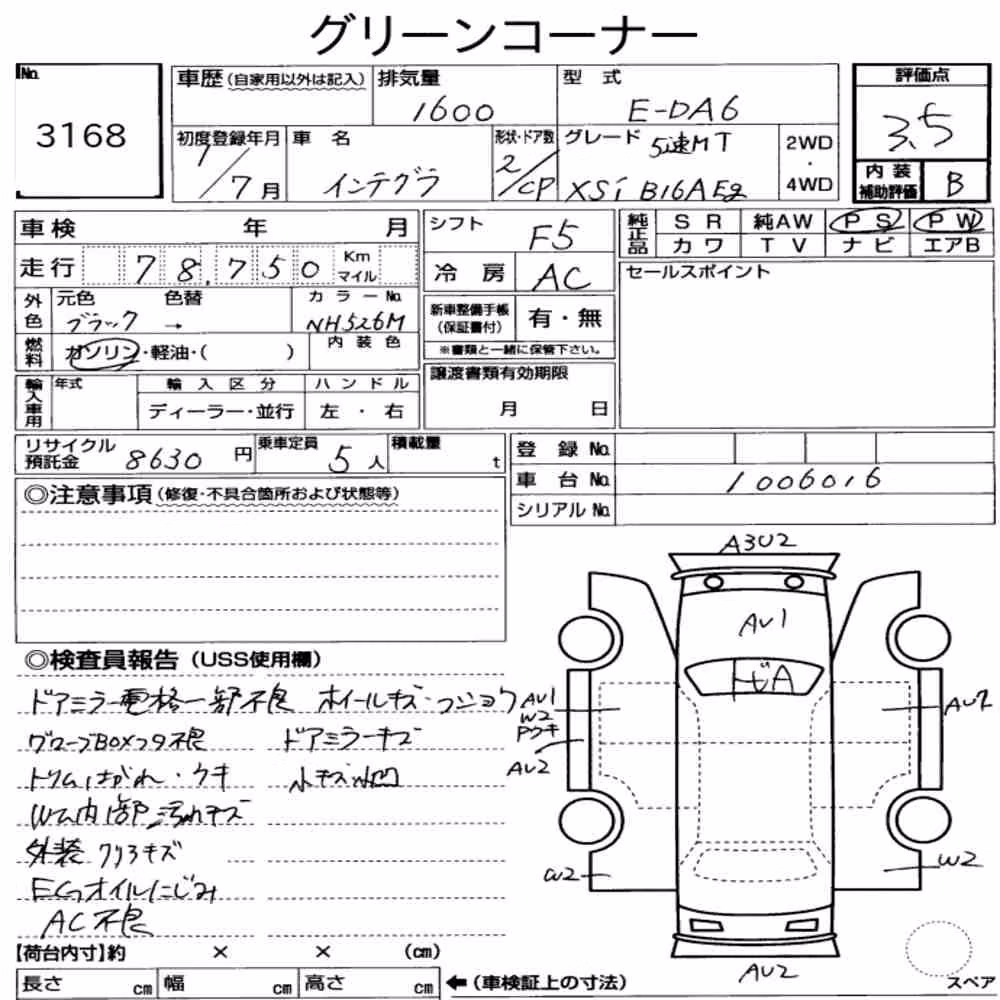 グリーンコーナー
No. 3168
車歴 (自家用以外は記入) 排気量 1600 型式 E-DA6
評価点 3.5
初度登録年月 1/7月 車名 インテグラ 形状・ドア数 2/CP グレード 5速MT XSi B16A 2WD・4WD
内装補助評価 B
車検 年 月
シフト F5
純正品 SR 純AW PS PW
カワ TV ナビ エアB
走行 78,750 Km マイル
冷房 AC
セールスポイント
外色 元色 ブラック 色替 → カラーNo. NH526M
新車整備手帳(保証書付) 有・無
※書類と一緒に保管下さい。
燃料 ガソリン・軽油・( ) 内装色
譲渡書類有効期限
月 日
輸入車用 年式 輸入区分 ハンドル
ディーラー・並行 左・右
リサイクル預託金 8630円 乗車定員 5人 積載量 t
登録No.
車台No. 1006016
シリアルNo.
◎注意事項(修復・不具合箇所および状態等)
◎検査員報告(USS使用欄)
ドアミラー電格一部不良 ホイールキズ・フショク
グローブBOXフタ不良 ドアミラーキズ
トリムはがれ・ウキ 小キズ小凹
W内部汚れキズ
外装クリフキズ
EGオイルにじみ
AC不良
A3U2
AU1
トビA
AU1
W2
Pウキ
AU2
AU2
W2
W2
AU2
【荷台内寸】約 × × (cm)
長さ cm 幅 cm 高さ cm ←(車検証上の寸法)
スペア